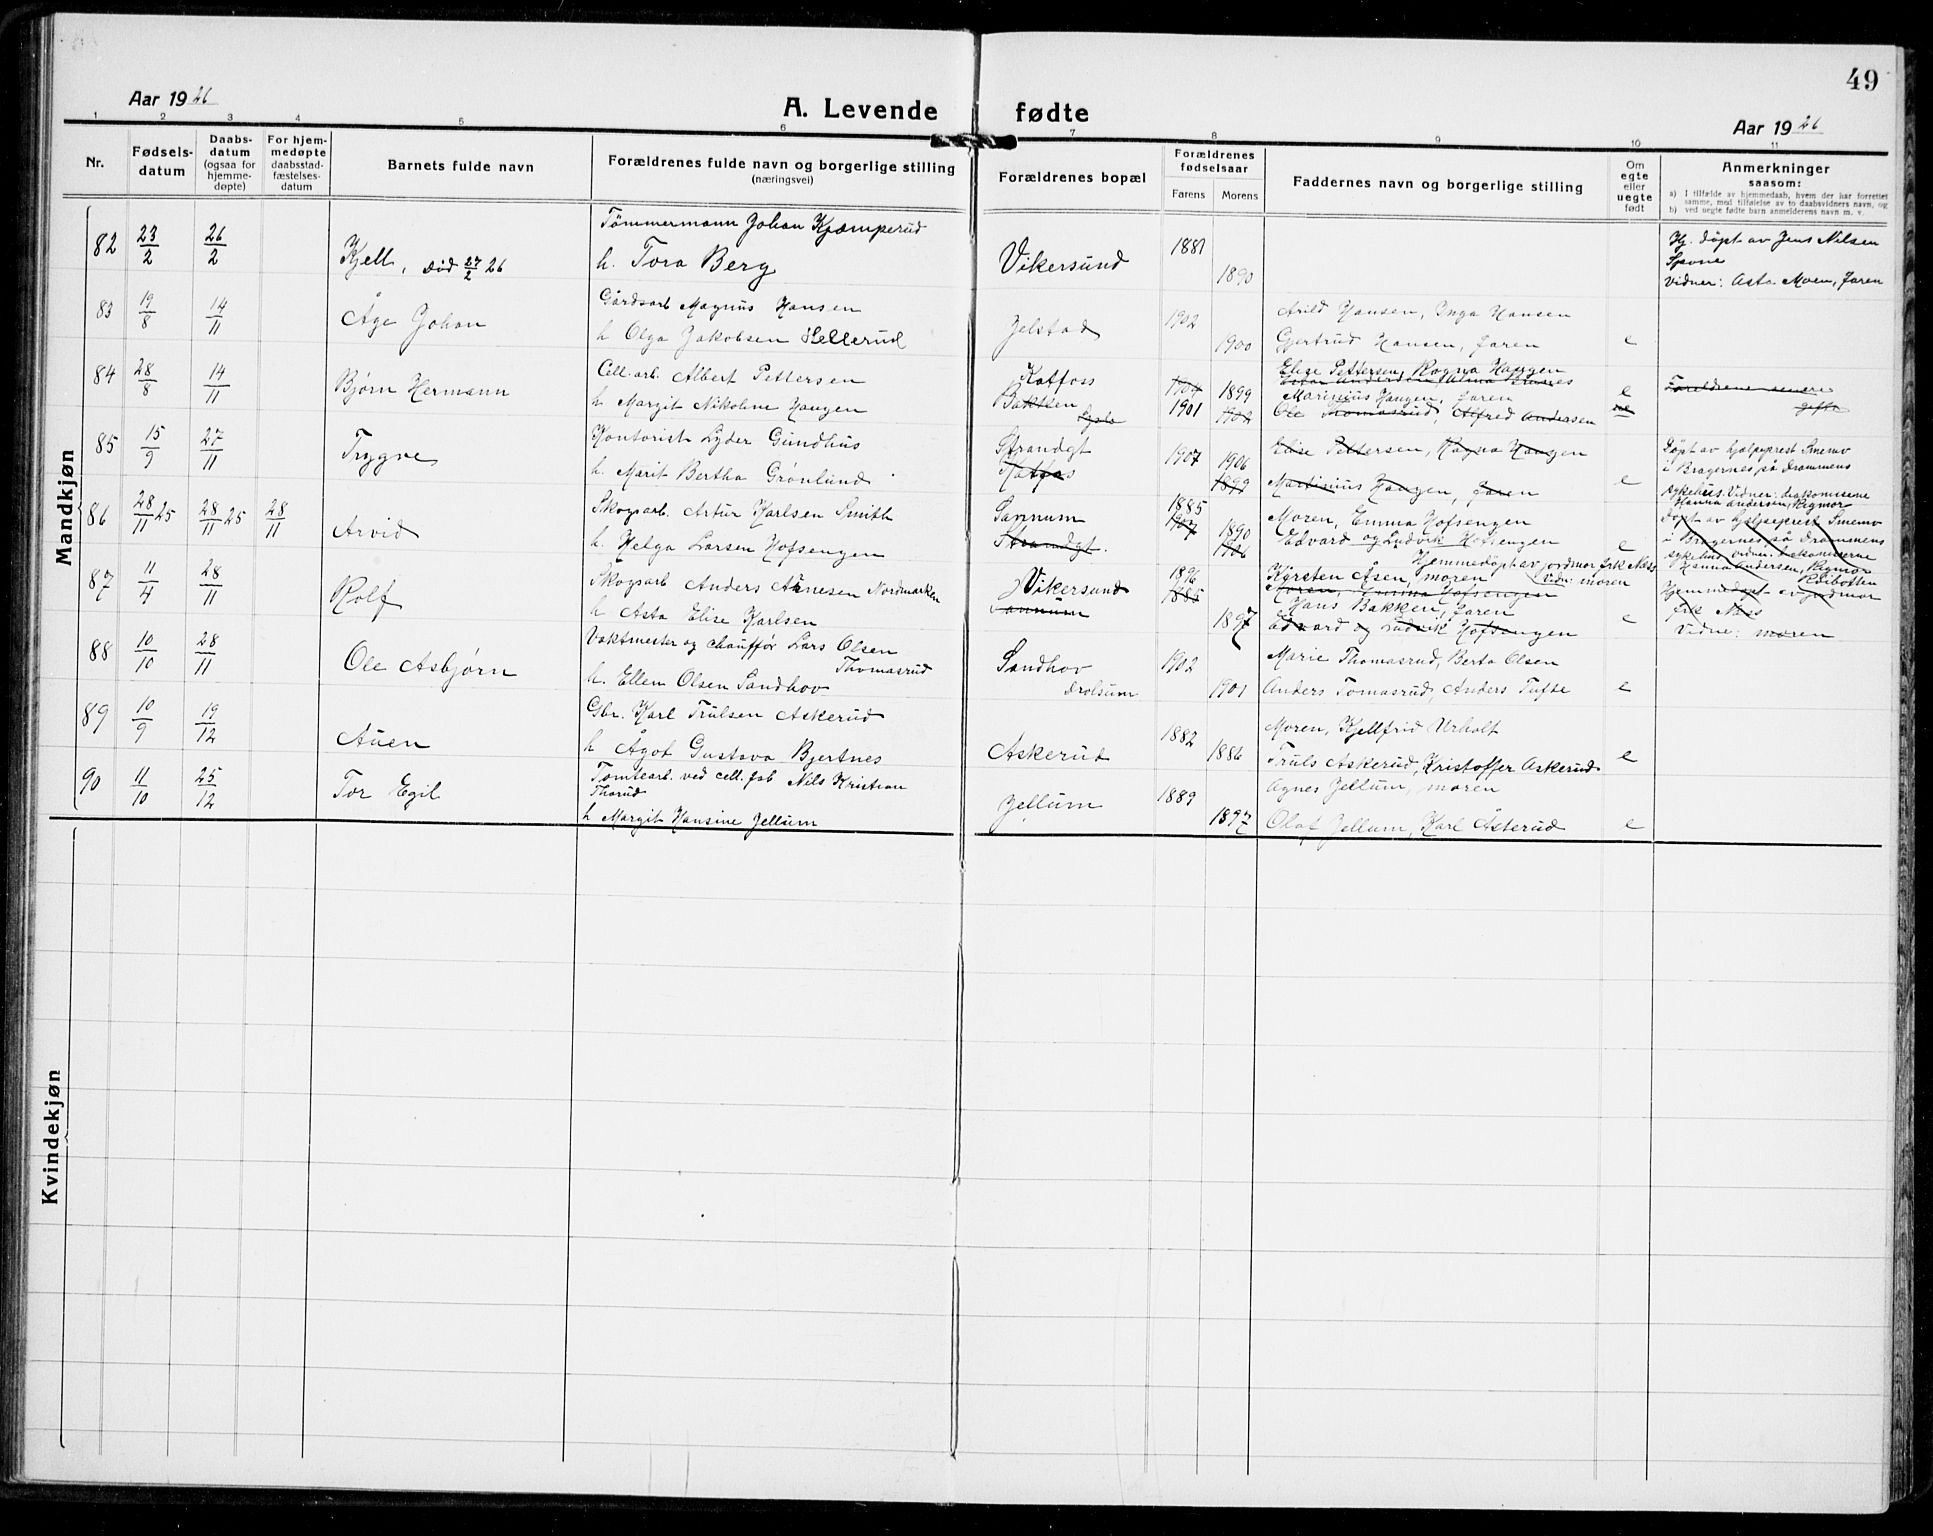 49
Aar 1926
A. Levende fødte
Aar 1926
1 2 3 4 5 6 7 8 9 10 11
Nr.
Fødsels-
datum
Daabs-
datum
(ogsaa for
hjemme-
døpte)
For hjem-
medøpte
daabsstad-
fæstelses-
datum
Barnets fulde navn
Forældrenes fulde navn og borgerlige stilling
(næringsvei)
Forældrenes bopæl
Forældrenes
fødselsaar
Farens Morens
Faddernes navn og borgerlige stilling
Om
egte
eller
uegte
født
Anmerkninger
saasom:
a) I tilfælde av hjemmedaab, hvem der har forrettet
samme, med tilføielse av to daabsvidners navn, og
b) ved uegte fødte barn anmelderens navn m. v.
Mandkjøn
82 23/2 26/2 Kjell, død 27/2 26
Tømmermann Johan Kjæmperud
h. Tora Berg
Vikersund 1881 1890
Hj. døpt av Jens Nilsen
Vidner: Asta Moen, Jaren
83 19/8 14/11 Åge Johan
Gårdsarb Magnus Hansen
h Olga Jakobsen Hellerud
Jelstad 1902 1900
Arild Hansen, Inga Hansen
Gjertrud Hansen, Jaren e
84 28/8 14/11 Bjørn Hermann
Cell. arb. Albert Pettersen
h Margit Nikoline Haugen
Katfoss
Bakken
1904 1899
1901 1902
Elise Pettersen, Ragna Haugen
Marinius Haugen, Jaren e
Ole Thomasrud, Alfred Andersen
Foreldrene senere
gifte
85 15/9 27/11 Trygve
Kontorist Lyder Gundhus
h. Marit Bertha Grønlund
Strandgt
Katfos
1907 1906
1899
Elise Pettersen, Ragna Haugen
Martinius Haugen, Jaren e
Døpt av hjelpeprest Smemo
i Bragernes på Drammens
sykehus. Vidner: diakonissene
Hanna Andersen, Ragmor
86 28/11 25 28/11 25 28/11 Arvid
Skogsarb. Artur Karlsen Smith
h. Helga Larsen Hofsengen
Sannum
Strandgt.
1885
1907 1890
1906
Moren, Emma Hofsengen
Edvard og Ludvik Hofsengen e
Hjemmedøpt av jordmor frk Næss
Vidn: moren
Døpt av hjelpeprest Smemo
i Bragernes på Drammens
sykehus vidner: diakonisserne
Hanna Andersen, Ragmor
87 11/4 28/11 Rolf
Skogsarb Anders Arnesen Nordmarken
h Asta Elise Karlsen
Vikersund
Sannum
1896
1885
1897
Kirsten Åsen, moren
Moren, Emma Hofsengen
Hans Bakken, Jaren
Edvard og Ludvik Hofsengen e
Hjemmedøpt av jordmor
frk Næss
Vidne: moren
88 10/10 28/11 Ole Asbjørn
Vaktmester og chauffør Lars Olsen
Thomasrud
h. Ellen Olsen Sandhov
Sandhov
Drolsum
1902 1901
Marie Thomasrud, Berta Olsen
Anders Tomasrud, Anders Tufte e
89 10/9 19/12 Auen
Gbr. Karl Trulsen Askerud
h Ågot Gustava Bjertnes
Askerud 1882 1886
Moren, Kjellfrid Urholt
Truls Askerud, Kristoffer Askerud e
90 11/10 25/12 Tor Egil
Tomtearb. ved cell. fab Nils Kristian
Thorud
h Margit Hansine Jellum
Jellum 1889
Agnes Jellum, moren
Olaf Jellum, Karl Åsterud e
Kvindekjøn